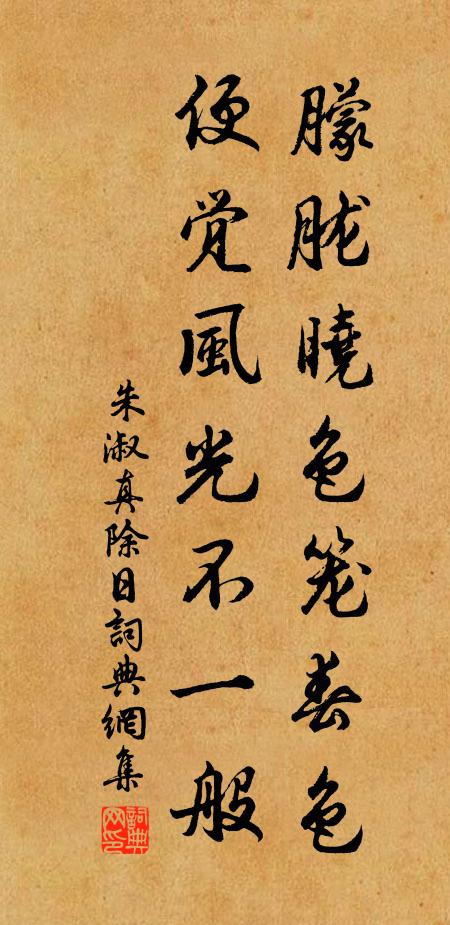 朦胧曉色笼春色
便觉風光不一般
朱淑真除日詞典網集
詞典网印